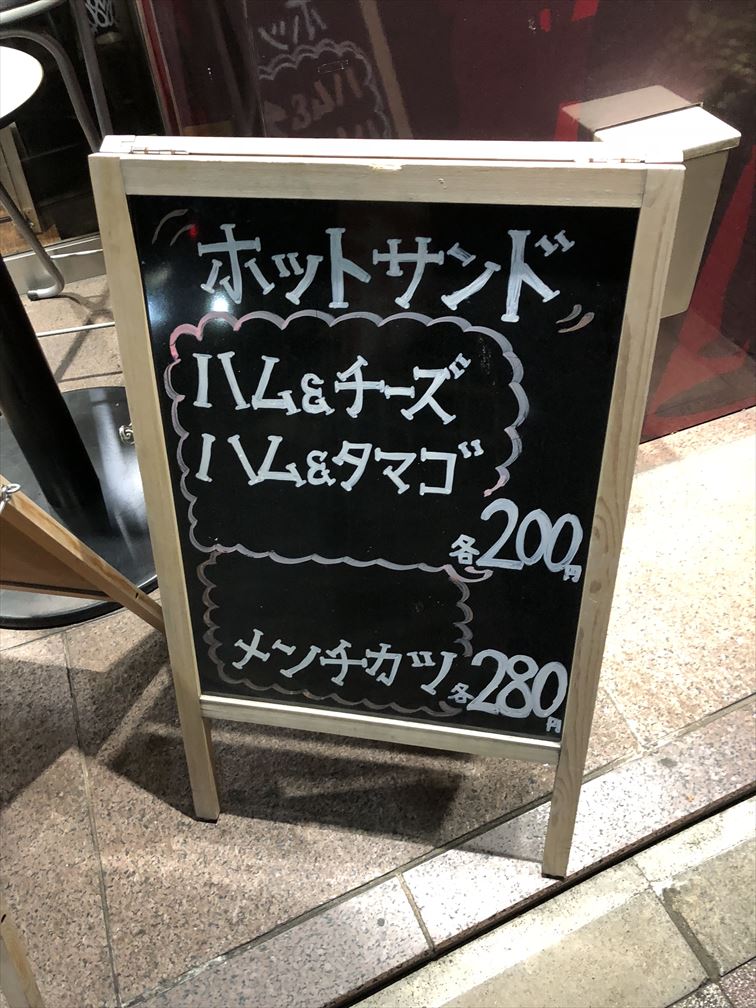 ホットサンド
ハム&チーズ
ハム&タマゴ
各200円
メンチカツ各280円
ホッ
ハム&
ハム